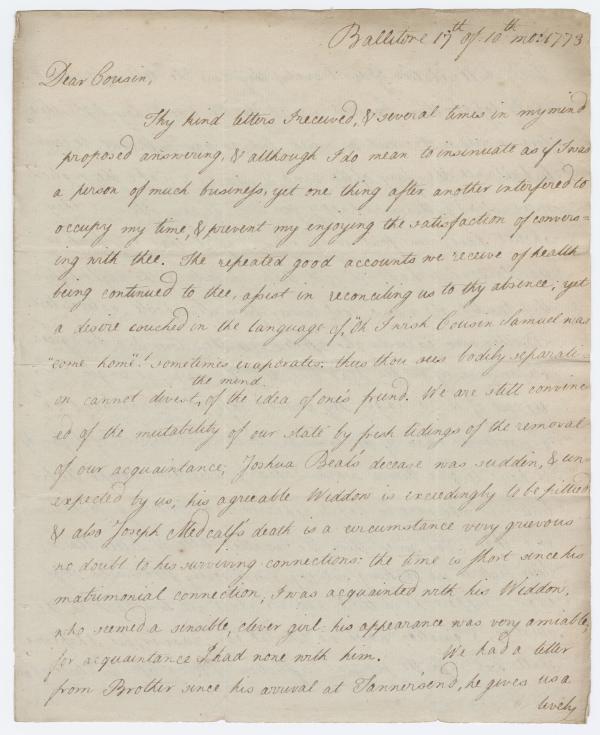 Ballitore 17th of 10th mo: 1773
Dear Cousin,
Thy kind letters I received, & several times in my mind
proposed answering, & although I do mean to insinuate as if I was
a person of much business, yet one thing after another interfered to
occupy my time, & prevent my enjoying the satisfaction of convers=
ing with thee. The repeated good accounts we receive of health
being continued to thee, assist in reconciling us to thy absence; yet
a desire couched in the language of, "Oh I wish Cousin Samuel was
"come home"! sometimes evaporates: thus thou sees bodily separati-
on cannot divest, the mind of the idea of one's friend. We are still convinc
ed of the mutability of our state by fresh tidings of the removal
of our acquaintance; Joshua Beal's decease was sudden, & un-
expected by us; his agreeable Widdow is exceedingly to be pittied
& also Joseph Medcalf's death is a circumstance very grievous
no doubt to his surviving connections: the time is short since his
matrimonial connection, I was acquainted with his Widdow,
who seemed a sensible, clever girl: his appearance was very amiable,
for acquaintance I had none with him. We had a letter
from Brother since his arrival at Tanner'send, he gives us a
lively